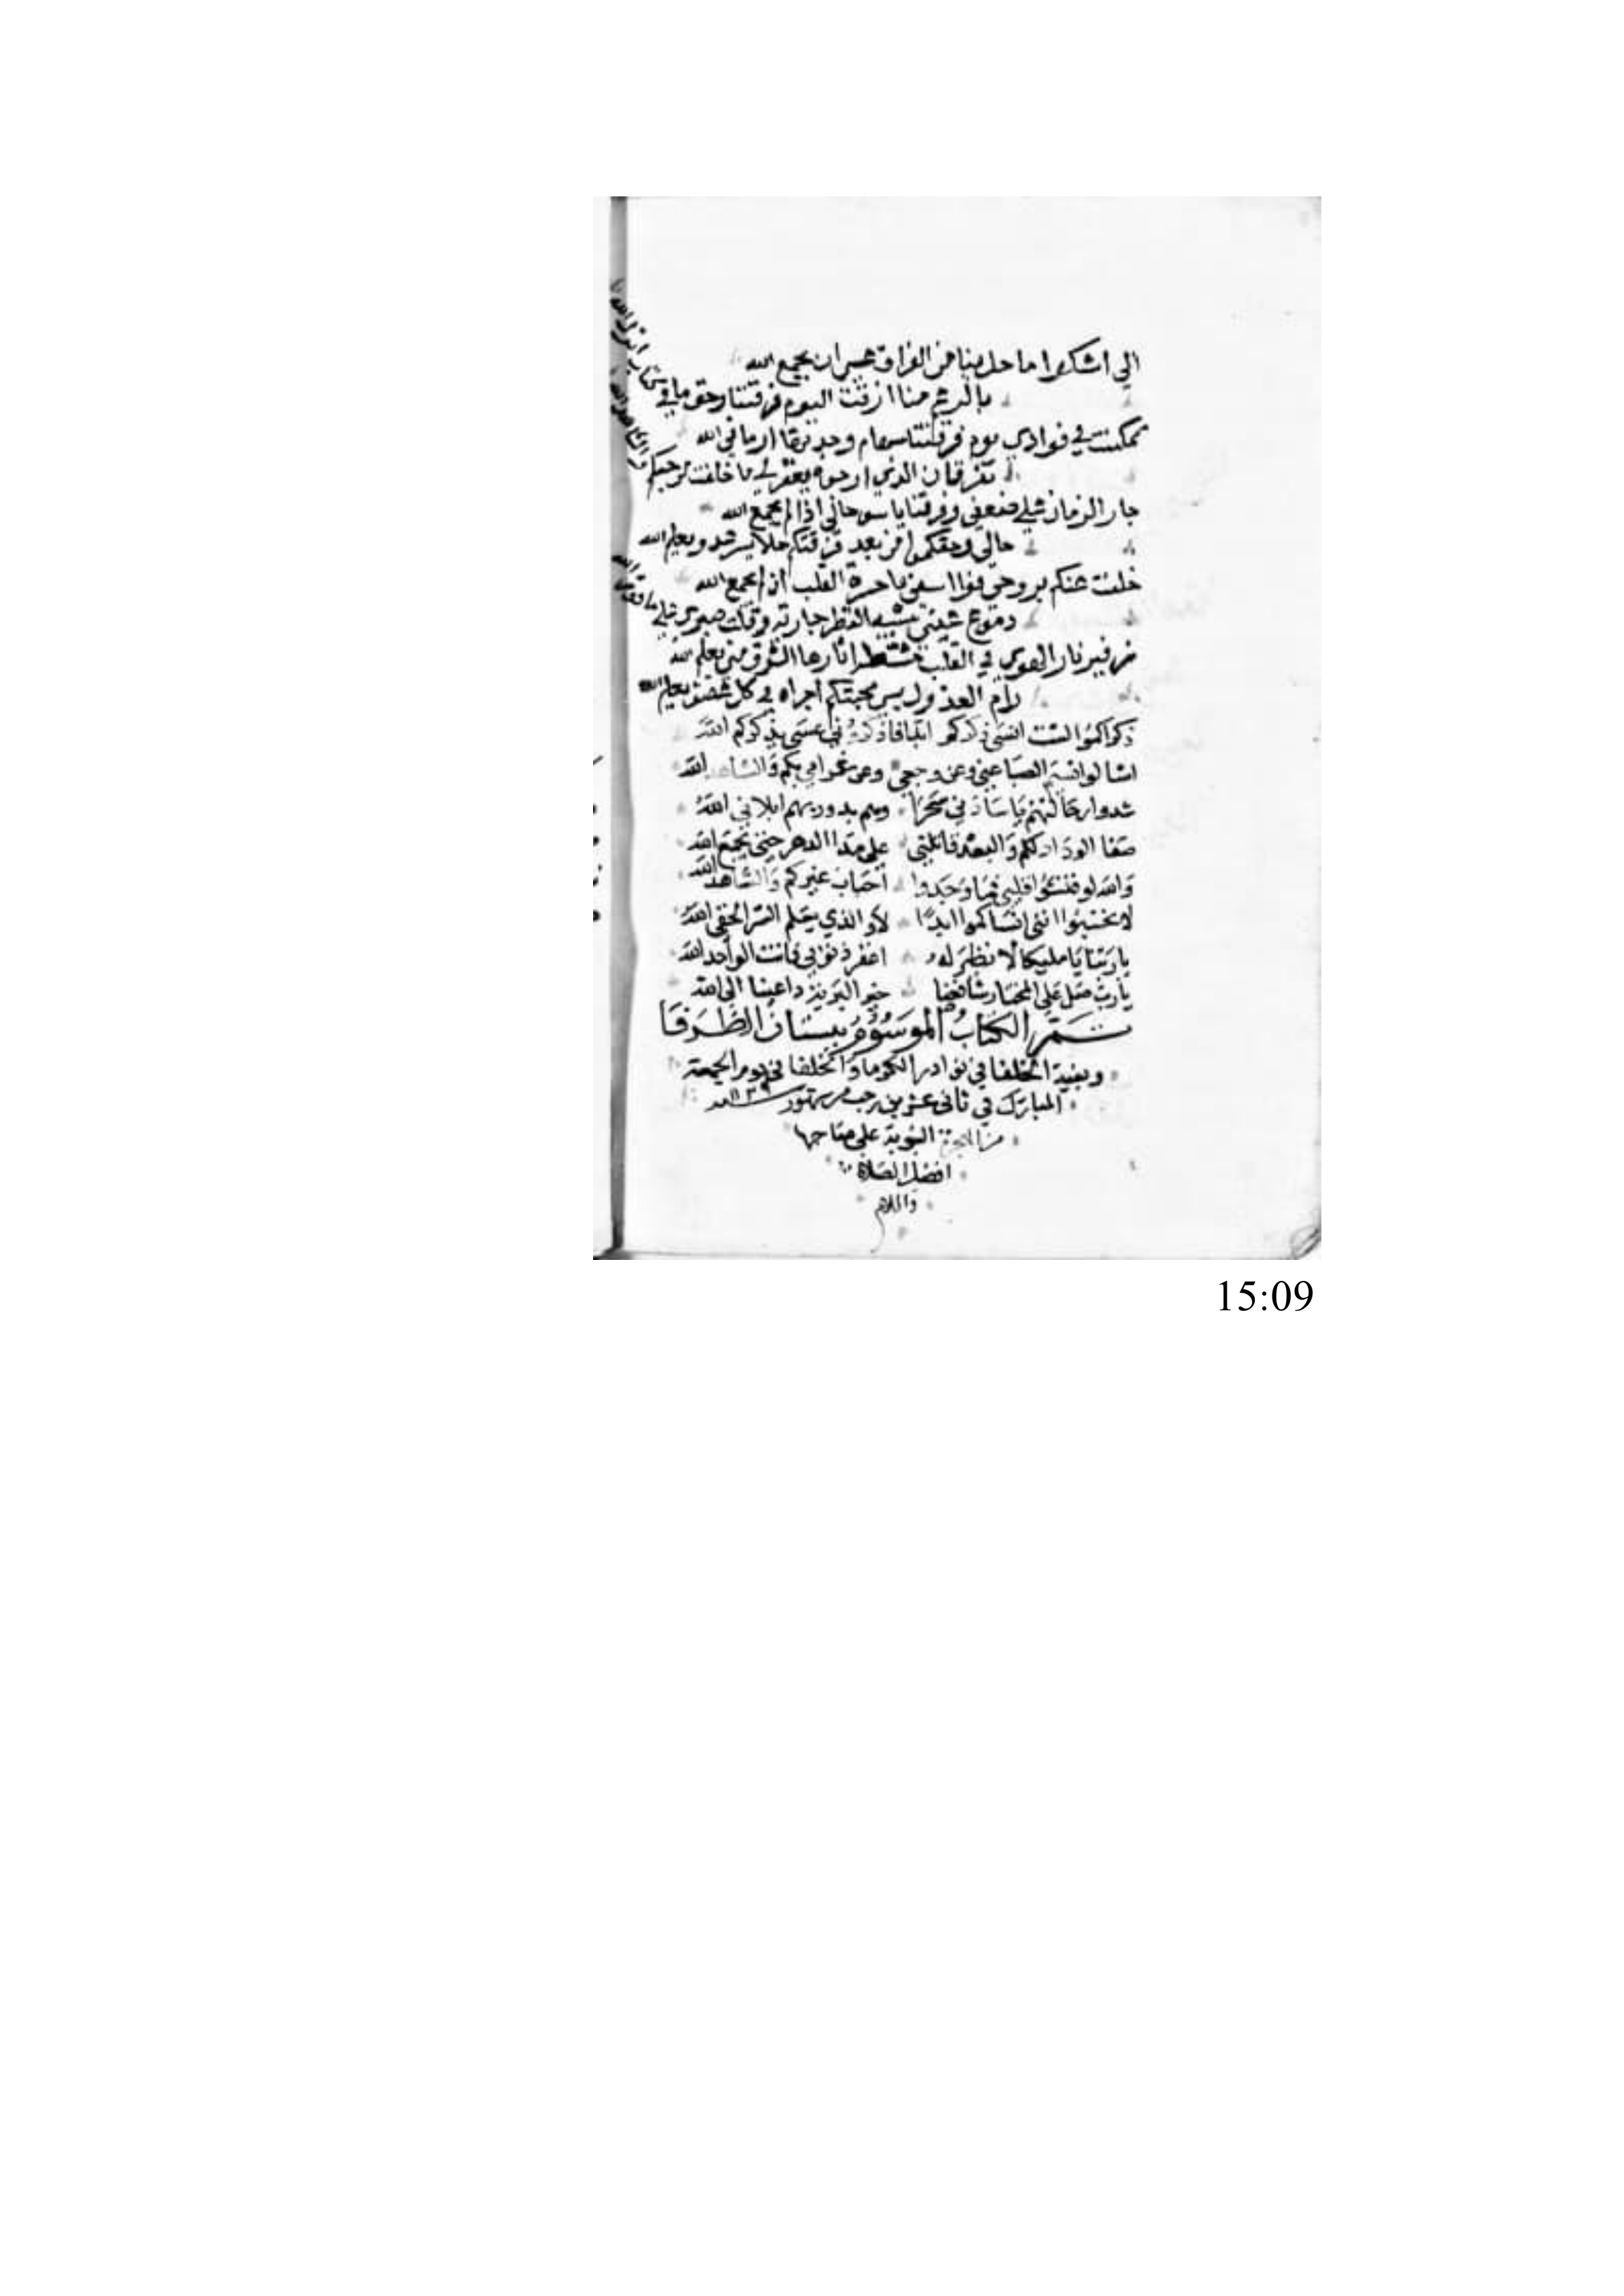 الي اشكوا ما حل بنا من الفراق عسى ان يجمع الله
بالرغم منا ازفت اليوم فرقتنا وحق ما في كتاب انزل الله
تمكنت في فوادي يوم فرقتنا سهام وجد بها ارماني الله
تفرقا الذي ارجوه يغفر لي ما خلفت من حبكم والشاهد الله
جار الزمان علي ضعفي وفرقنا يا سو حالي اذا لم يجمع الله
حالي وحقكموا من بعد فرقتكم يعلم الله
خلفت عنكم بروحي فوا اسفي يا حسرة القلب ان لم يجمع الله
دموع عيني تشبه القطر جارية وقلت صبري علي ما
زفير نار الهوى في القلب مني يعلم الله
رام العذول محبتكم اجراه في كل يعلم الله
ذكراكموا لست انسى ذكركم ابدا فاذكروني عسى يذكركم الله
اسالوا نسيم الصبا عني وعن وجعي وعن غرامي بكم والشاهد الله
شدوا رحالهم يا ساد في سحرا وهم بدور بهم ابلاني الله
صفا الوداد لكم والبعد قاتلني على مدا الدهر حتى يجمع الله
والله لو فتشوا قلبي فما وجدوا احباب غيركم والشاهد الله
لا تحسبوا انني انساكموا ابدا لا والذي يعلم السر الخفي الله
يا ربنا يا مليكا لا نظير له اغفر ذنوبي فانت الواحد الله
يا رب صل على المختار شافعنا خير البرية داعينا الى الله
تم الكتاب الموسوم ببستان الظرفا
وبغية الخلفا في نوادر الحكوما والخلفا في يوم الجمعة
المبارك في ثاني عشرين رجب من شهور سنة ١١٣٩
من الهجرة النبوية على صاحبها
افضل الصلاة
والسلام
15:09